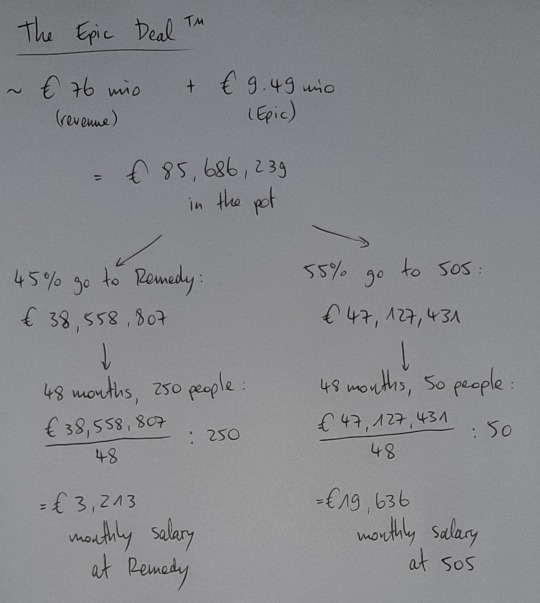 The Epic Deal™
~ € 76 mio + € 9.49 mio
(revenue) (Epic)
= € 85,686,239
in the pot
45% go to Remedy:
€ 38,558,807
48 months, 250 people:
€38,558,807
48
: 250
= € 3,213
monthly salary
at Remedy
55% go to 505:
€ 47,127,431
48 months, 50 people:
€ 47,127,431
48
: 50
= €19,636
monthly salary
at 505